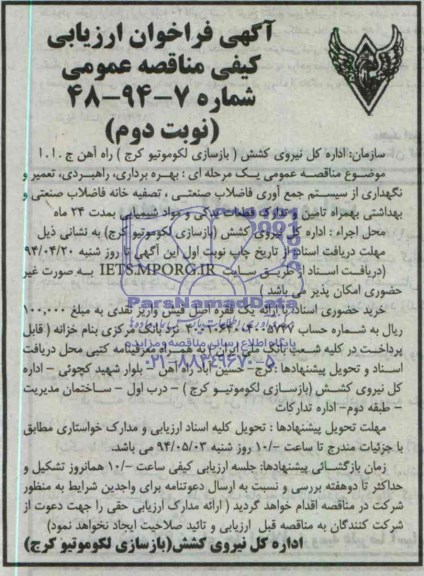 آگهی فراخوان ارزیابی
کیفی مناقصه عمومی
شماره ۷-۹۴-۴۸
(نوبت دوم)
سازمان: اداره کل نیروی کشش ( بازسازی لکوموتیو کرج ) راه آهن ج.ا.ا
موضوع مناقصه عمومی یک مرحله ای : بهره برداری، راهبردی، تعمیر و
نگهداری از سیستم جمع آوری فاضلاب صنعتی ، تصفیه خانه فاضلاب صنعتی و
بهداشتی بهمراه تامین و تدارک قطعات یدکی و مواد شیمیایی بمدت ۲۴ ماه
محل اجراء : اداره کل نیروی کشش (بازسازی لکوموتیو کرج) به نشانی ذیل
مهلت دریافت اسناد: از تاریخ چاپ نوبت اول این آگهی تا روز شنبه ۹۴/۰۴/۲۰
(دریافت اسناد از طریق سایت IETS.MPORG.IR به صورت غیر
حضوری امکان پذیر می باشد )
خرید حضوری اسناد: با ارائه یک فقره اصل فیش واریز نقدی به مبلغ ۱۰۰,۰۰۰
ریال به شماره حساب نزد بانک مرکزی بنام خزانه ( قابل
پرداخت در کلیه شعب بانک ملی ایران) به همراه معرفینامه کتبی محل دریافت
اسناد و تحویل پیشنهادها : کرج – حسین آباد راه آهن – بلوار شهید کچوئی – اداره
کل نیروی کشش (بازسازی لکوموتیو کرج ) – درب اول – ساختمان مدیریت
– طبقه دوم- اداره تدارکات
مهلت تحویل پیشنهادها : تحویل کلیه اسناد ارزیابی و مدارک خواستاری مطابق
با جزئیات مندرج تا ساعت ۱۰/۰۰ روز شنبه ۹۴/۰۵/۰۳ می باشد.
زمان بازگشائی پیشنهادها: جلسه ارزیابی کیفی ساعت ۱۰/۰۰ همانروز تشکیل و
حداکثر تا دوهفته بررسی و نسبت به ارسال دعوتنامه برای واجدین شرایط به منظور
شرکت در مناقصه اقدام خواهد گردید ( ارائه مدارک ارزیابی حقی را جهت دعوت از
شرکت کنندگان به مناقصه قبل ارزیابی و تائید صلاحیت ایجاد نخواهد نمود)
اداره کل نیروی کشش(بازسازی لکوموتیو کرج)
ParsNamadData
پایگاه اطلاع رسانی مناقصه و مزایده
۰۲۱-۸۸۳۴۹۶۷۰-۵